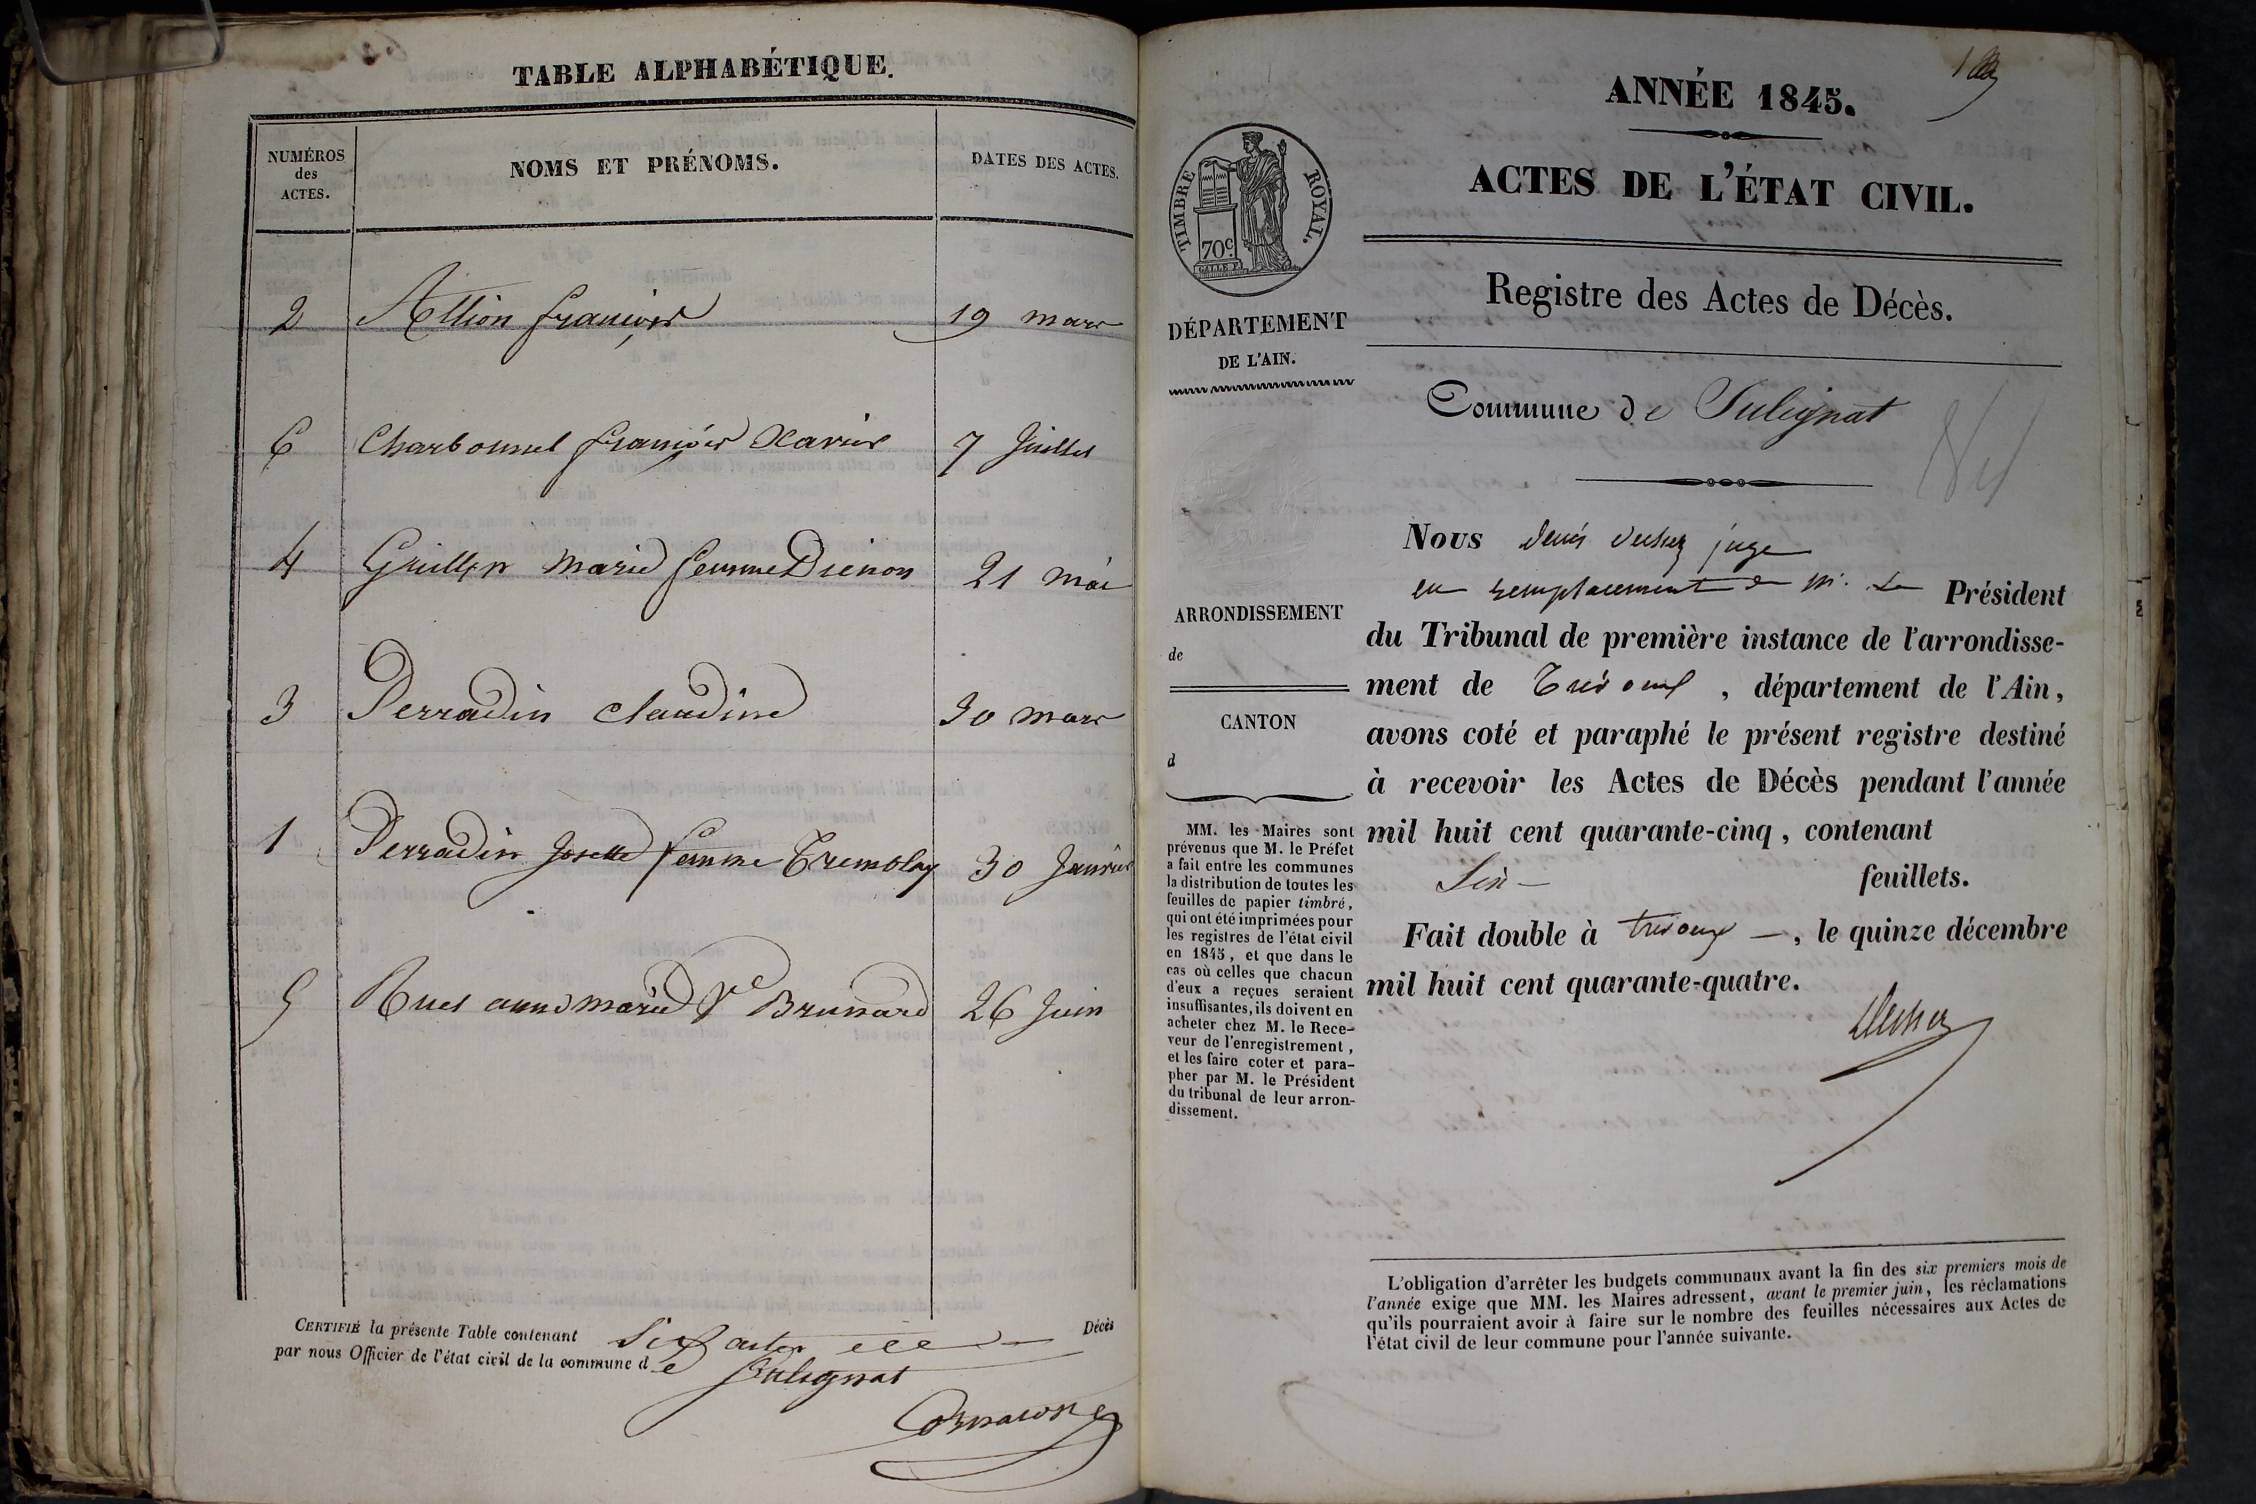 TABLE ALPHABÉTIQUE.
NUMÉROS
des
ACTES.
NOMS ET PRÉNOMS.
DATES DES ACTES.
2 Allion françois 19 mars
6 Charbonnel françois Xavier 7 Juillet
4 Guillon marie femme Drenon 21 mai
3 Perradin claudine 30 mars
1 Perradin Josette femme Tremblay 30 Janvier
5 Ruet anne marie Ve Brunard 26 Juin
CERTIFIÉ la présente Table contenant Six actes Décès
par nous Officier de l'état civil de la commune de
Sulignat
ANNÉE 1845.
ACTES DE L'ÉTAT CIVIL.
TIMBRE ROYAL.
70c.
Registre des Actes de Décès.
DÉPARTEMENT
DE L'AIN.
Commune de Sulignat
Nous Denis juge
en remplacement de M. Le Président
du Tribunal de première instance de l'arrondisse-
ment de Trévoux, département de l'Ain,
avons coté et paraphé le présent registre destiné
à recevoir les Actes de Décès pendant l'année
mil huit cent quarante-cinq, contenant
Six feuillets.
Fait double à trévoux, le quinze décembre
mil huit cent quarante-quatre.
ARRONDISSEMENT
de
CANTON
d
MM. les Maires sont
prévenus que M. le Préfet
a fait entre les communes
la distribution de toutes les
feuilles de papier timbré,
qui ont été imprimées pour
les registres de l'état civil
en 1845, et que dans le
cas où celles que chacun
d'eux a reçues seraient
insuffisantes, ils doivent en
acheter chez M. le Rece-
veur de l'enregistrement,
et les faire coter et para-
pher par M. le Président
du tribunal de leur arron-
dissement.
L'obligation d'arrêter les budgets communaux avant la fin des six premiers mois de
l'année exige que MM. les Maires adressent, avant le premier juin, les réclamations
qu'ils pourraient avoir à faire sur le nombre des feuilles nécessaires aux Actes de
l'état civil de leur commune pour l'année suivante.